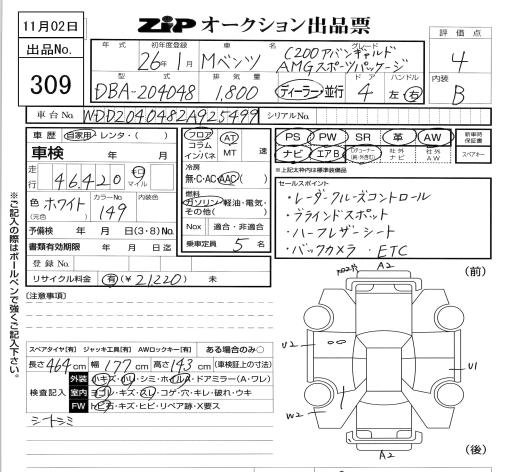 11月02日
ZIP オークション出品票
評価点
4
出品No.
309
年式 初年度登録 車名 グレード
26年1月 Mベンツ C200アバンギャルド
AMGスポーツパッケージ
型式 排気量 ドア ハンドル
DBA-204048 1,800 ディーラー・並行 4 左・右
内装
B
車台No. WDD2040482A925499 シリアルNo.
車歴 自家用・レンタ・( )
車検 年 月
走行 46,420 キロ マイル
色 (元色) ホワイト カラーNo. 149 内装色
予備検 年 月 日(3・8)No.
書類有効期限 年 月 日迄
登録No.
リサイクル料金 有(¥21220) 未
フロア コラム インパネ AT MT 速
冷房
無・C・AC・AAC( )
燃料
ガソリン・軽油・電気・
その他( )
Nox 適合・非適合
乗車定員 5 名
PS PW SR 革 AW 新車時保証書
ナビ エアB 社外ナビ 社外AW スペアキー
※上記太枠内は規格標準装備品
セールスポイント
・レーダークルーズコントロール
・ブラインドスポット
・ハーフレザーシート
・バックカメラ ・ETC
※ご記入の際はボールペンで強くご記入下さい。
[注意事項]
スペアタイヤ[有] ジャッキ工具[有] AWロックキー[有] ある場合のみ○
長さ464cm 幅177cm 高さ143cm (車検証上の寸法)
検査記入
外装 小キズ・小凹・シミ・ホイルA・ドアミラー(A・ワレ)
室内 ヨゴレ・キズ・スレ・コゲ・穴・キレ・破れ・ウキ
FW トビ石・キズ・ヒビ・リペア跡・X要ス
シートシミ
(前)
A2
U2
U1
W2
A2
(後)